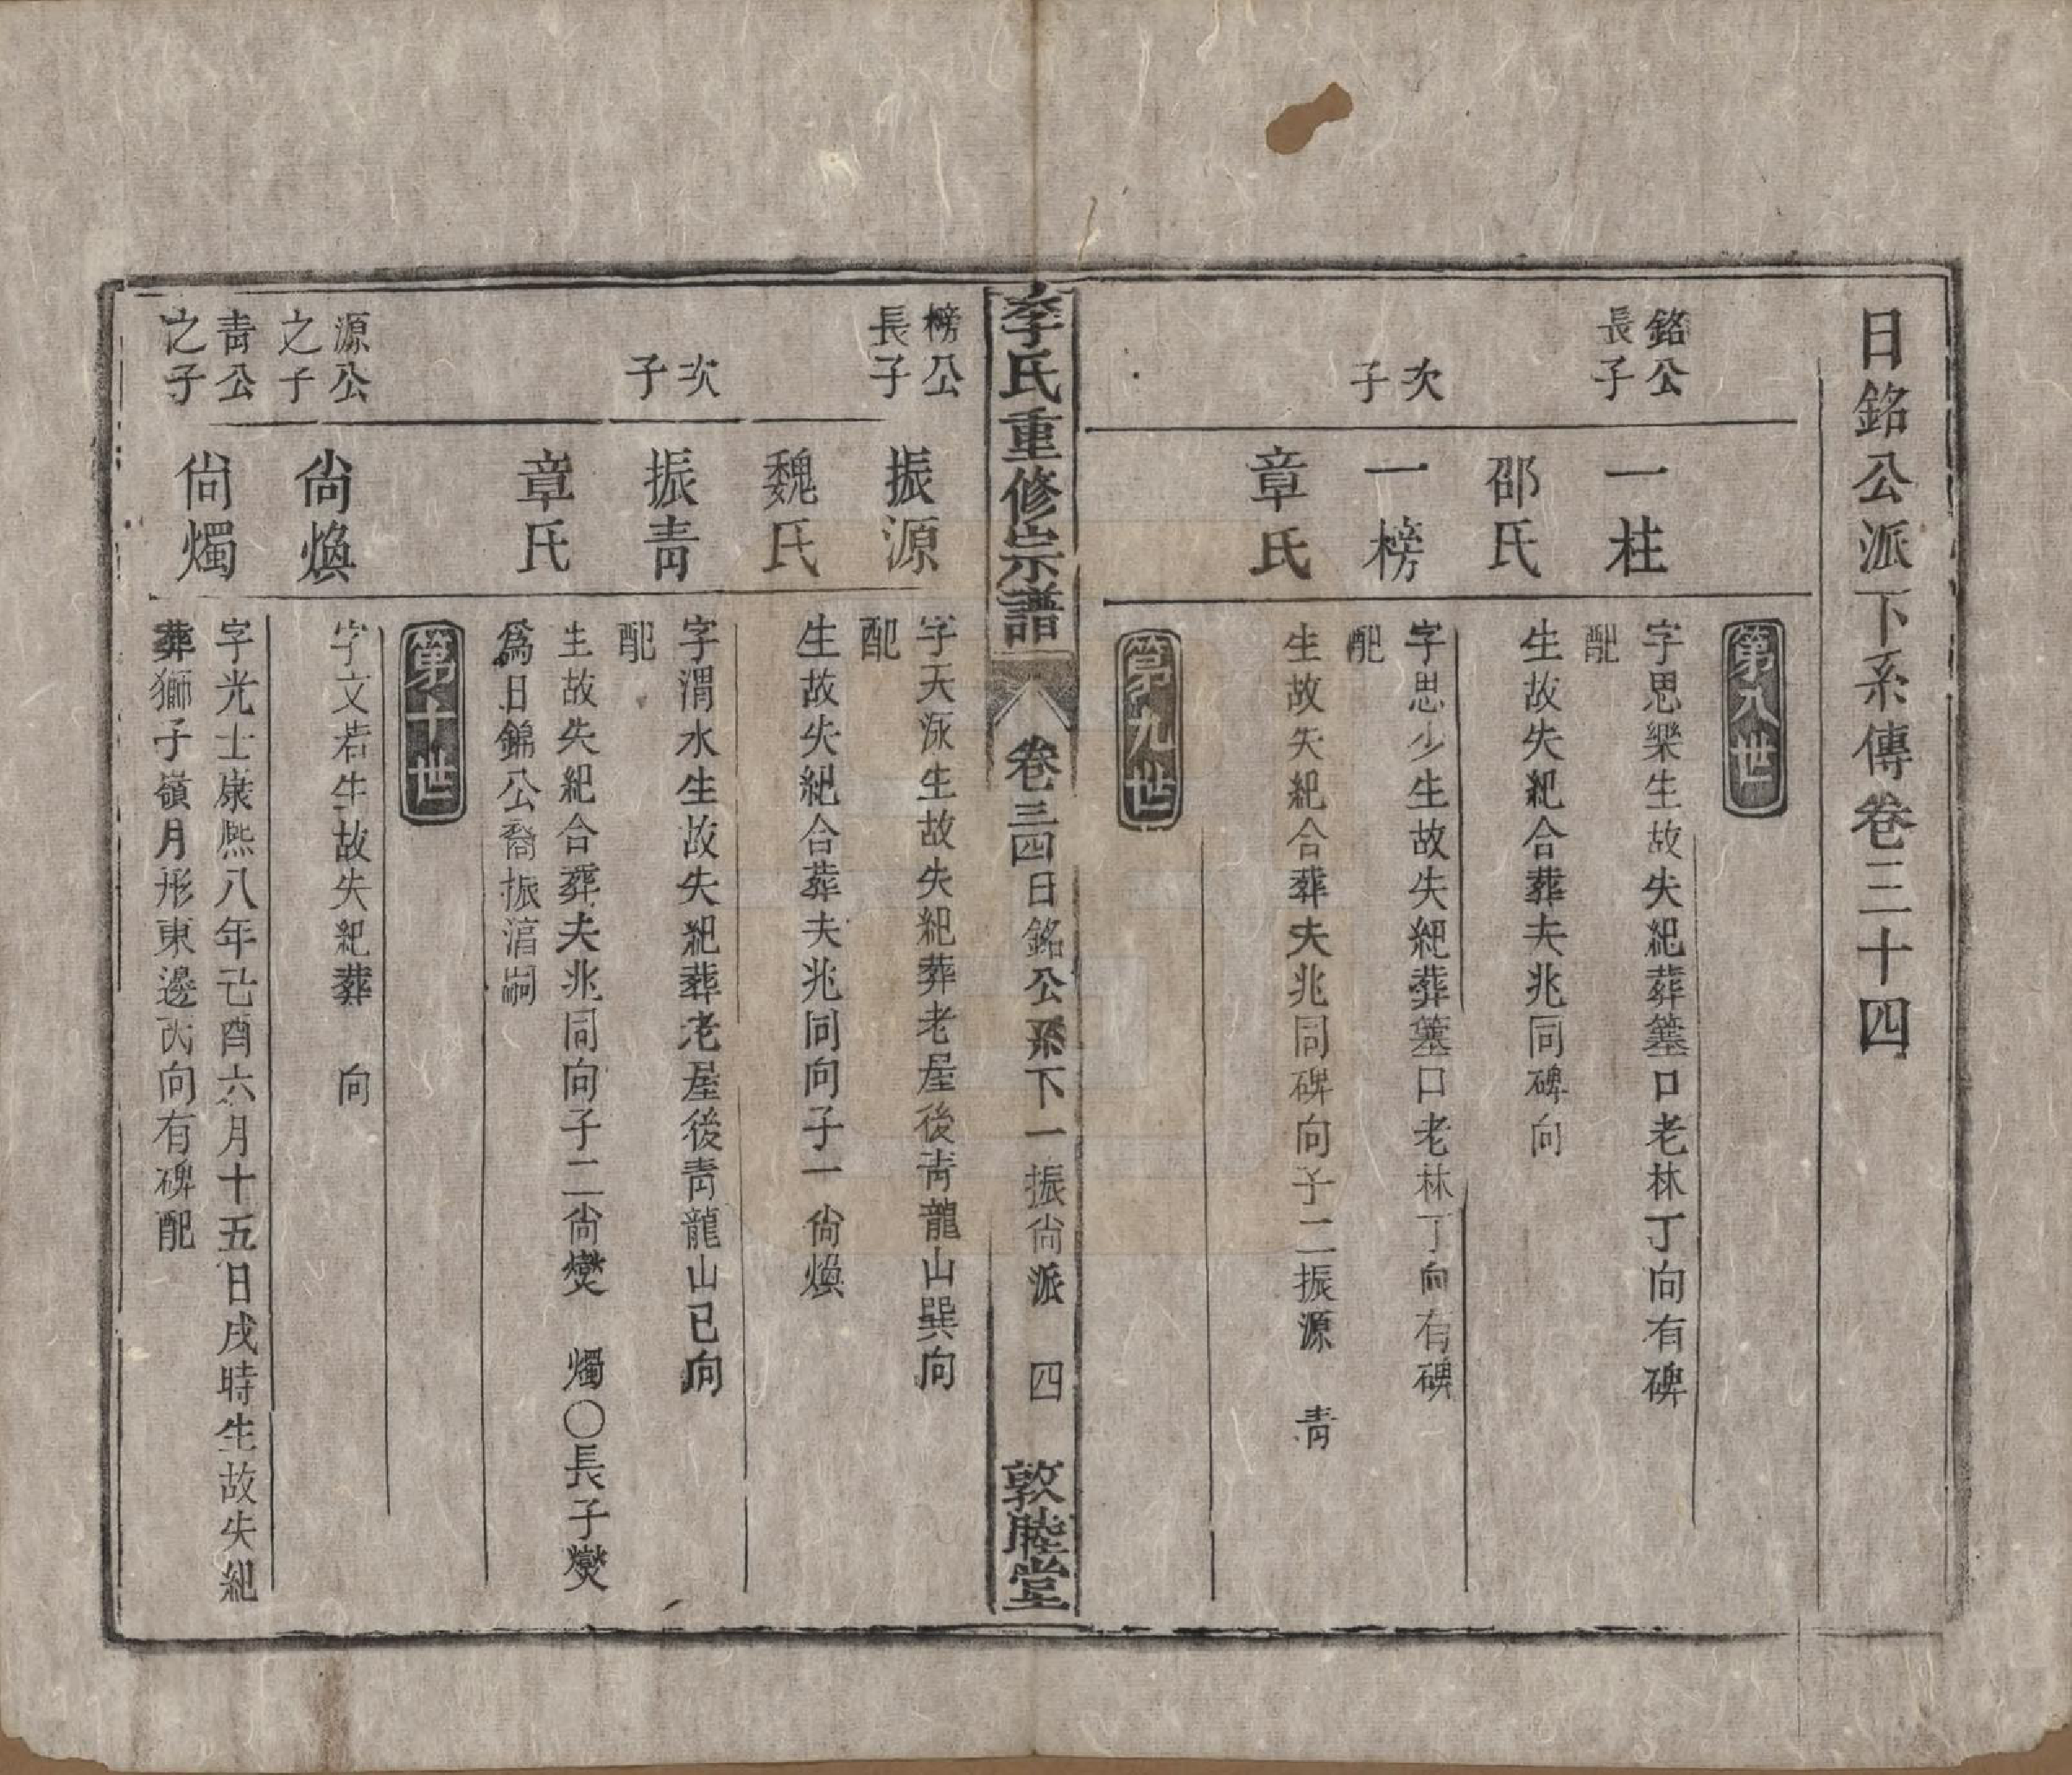 日銘公派下系傳卷三十四
第八世
銘公
長子
一柱
字思樂生故失紀葬墓口老林丁向有碑
配
邵氏
生故失紀合葬夫兆同碑向
次
子
一榜
字思少生故失紀葬墓口老林丁向有碑
配
章氏
生故失紀合葬夫兆同碑向子二振源 青
第九世
李氏重修宗譜
卷三四日銘公系下一振尙派 四
敦睦堂
榜公
長子
振源
字天泳生故失紀葬老屋後靑龍山巽向
配
魏氏
生故失紀合葬夫兆同向子一尙煥
次
子
振青
字渭水生故失紀葬老屋後靑龍山巳向
配
章氏
生故失紀合葬夫兆同向子二尙爕 燭○長子爕
爲日錦公裔振湻嗣
第十世
源公
之子
尙煥
字文若生故失紀葬 向
青公
之子
尙燭
字光士康熙八年己酉六月十五日戌時生故失紀
葬獅子嶺月形東邊丙向有碑配